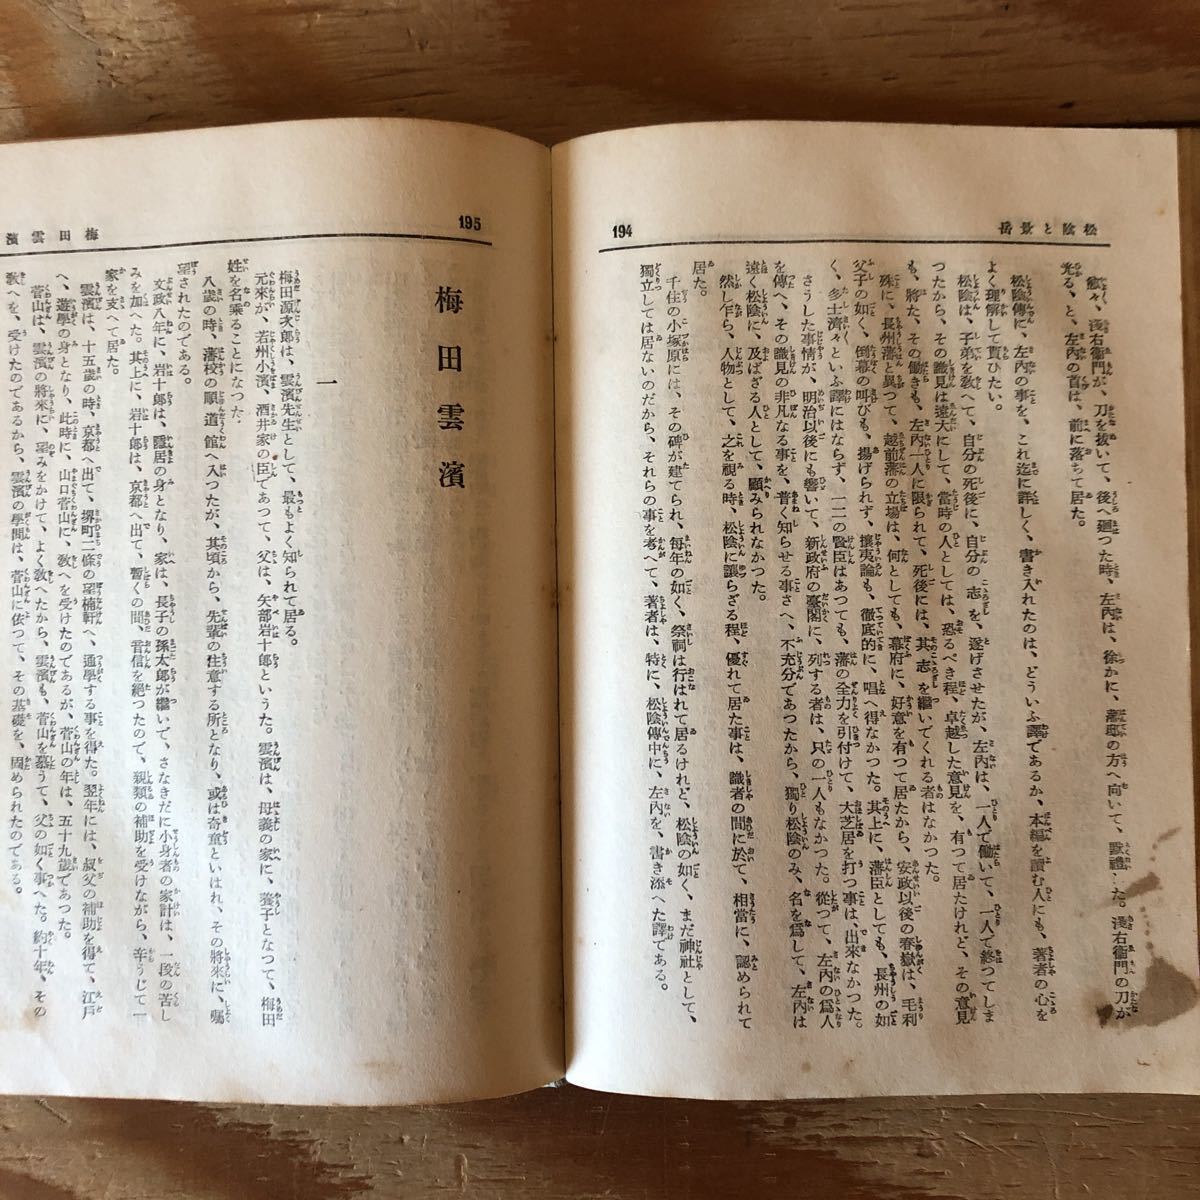 松陰と景岳
194
愈々、淺右衞門が、刀を拔いて、後へ廻つた時、左內は、徐かに、藩邸の方へ向いて、默禮した。淺右衞門の刀が
光る、と、左內の首は、前に落ちて居た。
松陰傳に、左內の事を、これ迄に詳しく、書き入れたのは、どういふ譯であるか、本編を讀む人にも、著者の心を
よく理解して貰ひたい。
松陰は、子弟を敎へて、自分の死後に、自分の志を、遂げさせたが、左內は、一人で働いて、一人で終つてしま
つたから、その識見は遠大にして、當時の人としては、恐るべき程、卓越した意見を、有つて居たけれど、その意見
も、將た、その働きも、左內一人に限られて、死後には、其志を繼いでくれる者はなかつた。
殊に、長州藩と異つて、越前藩の立場は、何としても、幕府に、好意を有つて居たから、安政以後の春嶽は、毛利
父子の如く、倒幕の叫びも、揚げられず、攘夷論も、徹底的に、唱へ得なかつた。其上に、藩臣としても、長州の如
く、多士濟々といふ譯にはならず、一二の賢臣はあつても、藩の全力を引付けて、大芝居を打つ事は、出來なかつた。
さうした事情が、明治以後にも響いて、新政府の臺閣に、列する者は、只の一人もなかつた。從つて、左內の爲人
を傳へ、その識見の非凡なる事を、普く知らせる事さへ、不充分であつたから、獨り松陰のみ、名を爲して、左內は
遠く松陰に、及ばざる人として、顧みられなかつた。
然し乍ら、人物として、之を視る時、松陰に讓らざる程、優れて居た事は、識者の間に於て、相當に、認められて
居た。
千住の小塚原には、その碑が建てられ、每年の如く、祭祠は行はれて居るけれど、松陰の如く、まだ神社として、
獨立しては居ないのだから、それらの事を考へて、著者は、特に、松陰傳中に、左內を、書き添へた譯である。
195
梅田雲濱
梅田雲濱
一
梅田源次郞は、雲濱先生として、最もよく知られて居る。
元來が、若州小濱、酒井家の臣であつて、父は、矢部岩十郞というた。雲濱は、母義の家に、養子となつて、梅田
姓を名乘ることになつた。
八歲の時、藩校の順道館へ入つたが、其頃から、先輩の注意する所となり、或は奇童といはれ、その將來に、囑
望されたのである。
文政八年に、岩十郞は、隱居の身となり、家は、長子の孫太郞が繼いで、さなきだに小身者の家計は、一段の苦し
みを加へた。其上に、岩十郞は、京都へ出て、暫くの間、音信を絕つたので、親類の補助を受けながら、辛うじて一
家を支へて居た。
雲濱は、十五歲の時、京都へ出て、堺町二條の望楠軒へ、通學する事を得た。翌年には、叔父の補助を得て、江戶
へ、遊學の身となり、此時に、山口菅山に、敎へを受けたのであるが、菅山の年は、五十九歲であつた。
菅山は、雲濱の將來に、望みをかけて、よく敎へたから、雲濱も、菅山を慕うて、父の如く事へた。約十年、その
敎へを、受けたのであるから、雲濱の學問は、菅山に依つて、その基礎を、固められたのである。